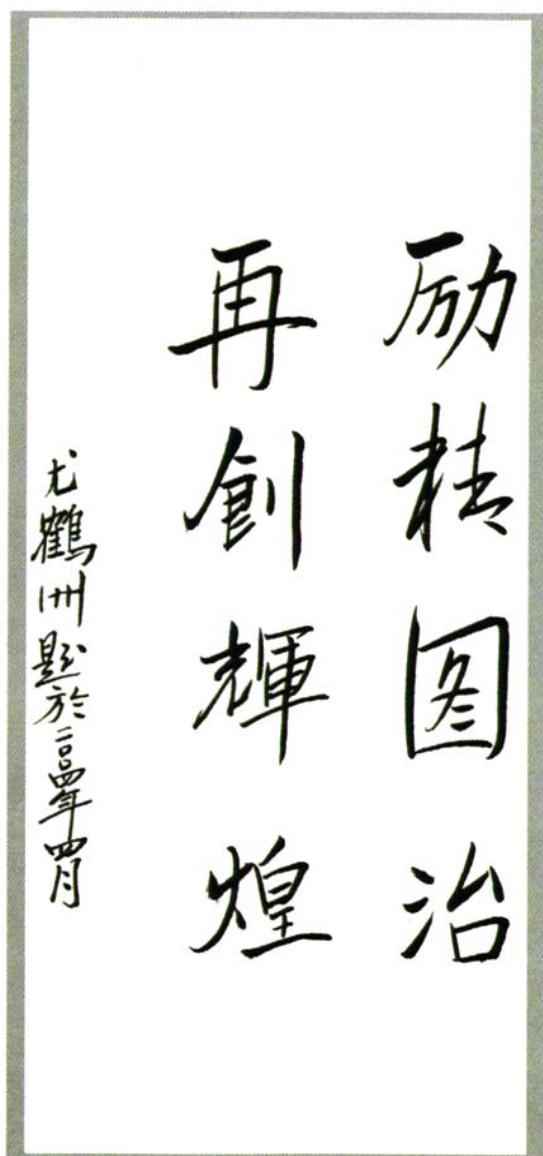 励精图治
再創輝煌
尤鶴洲题於二〇〇四年四月